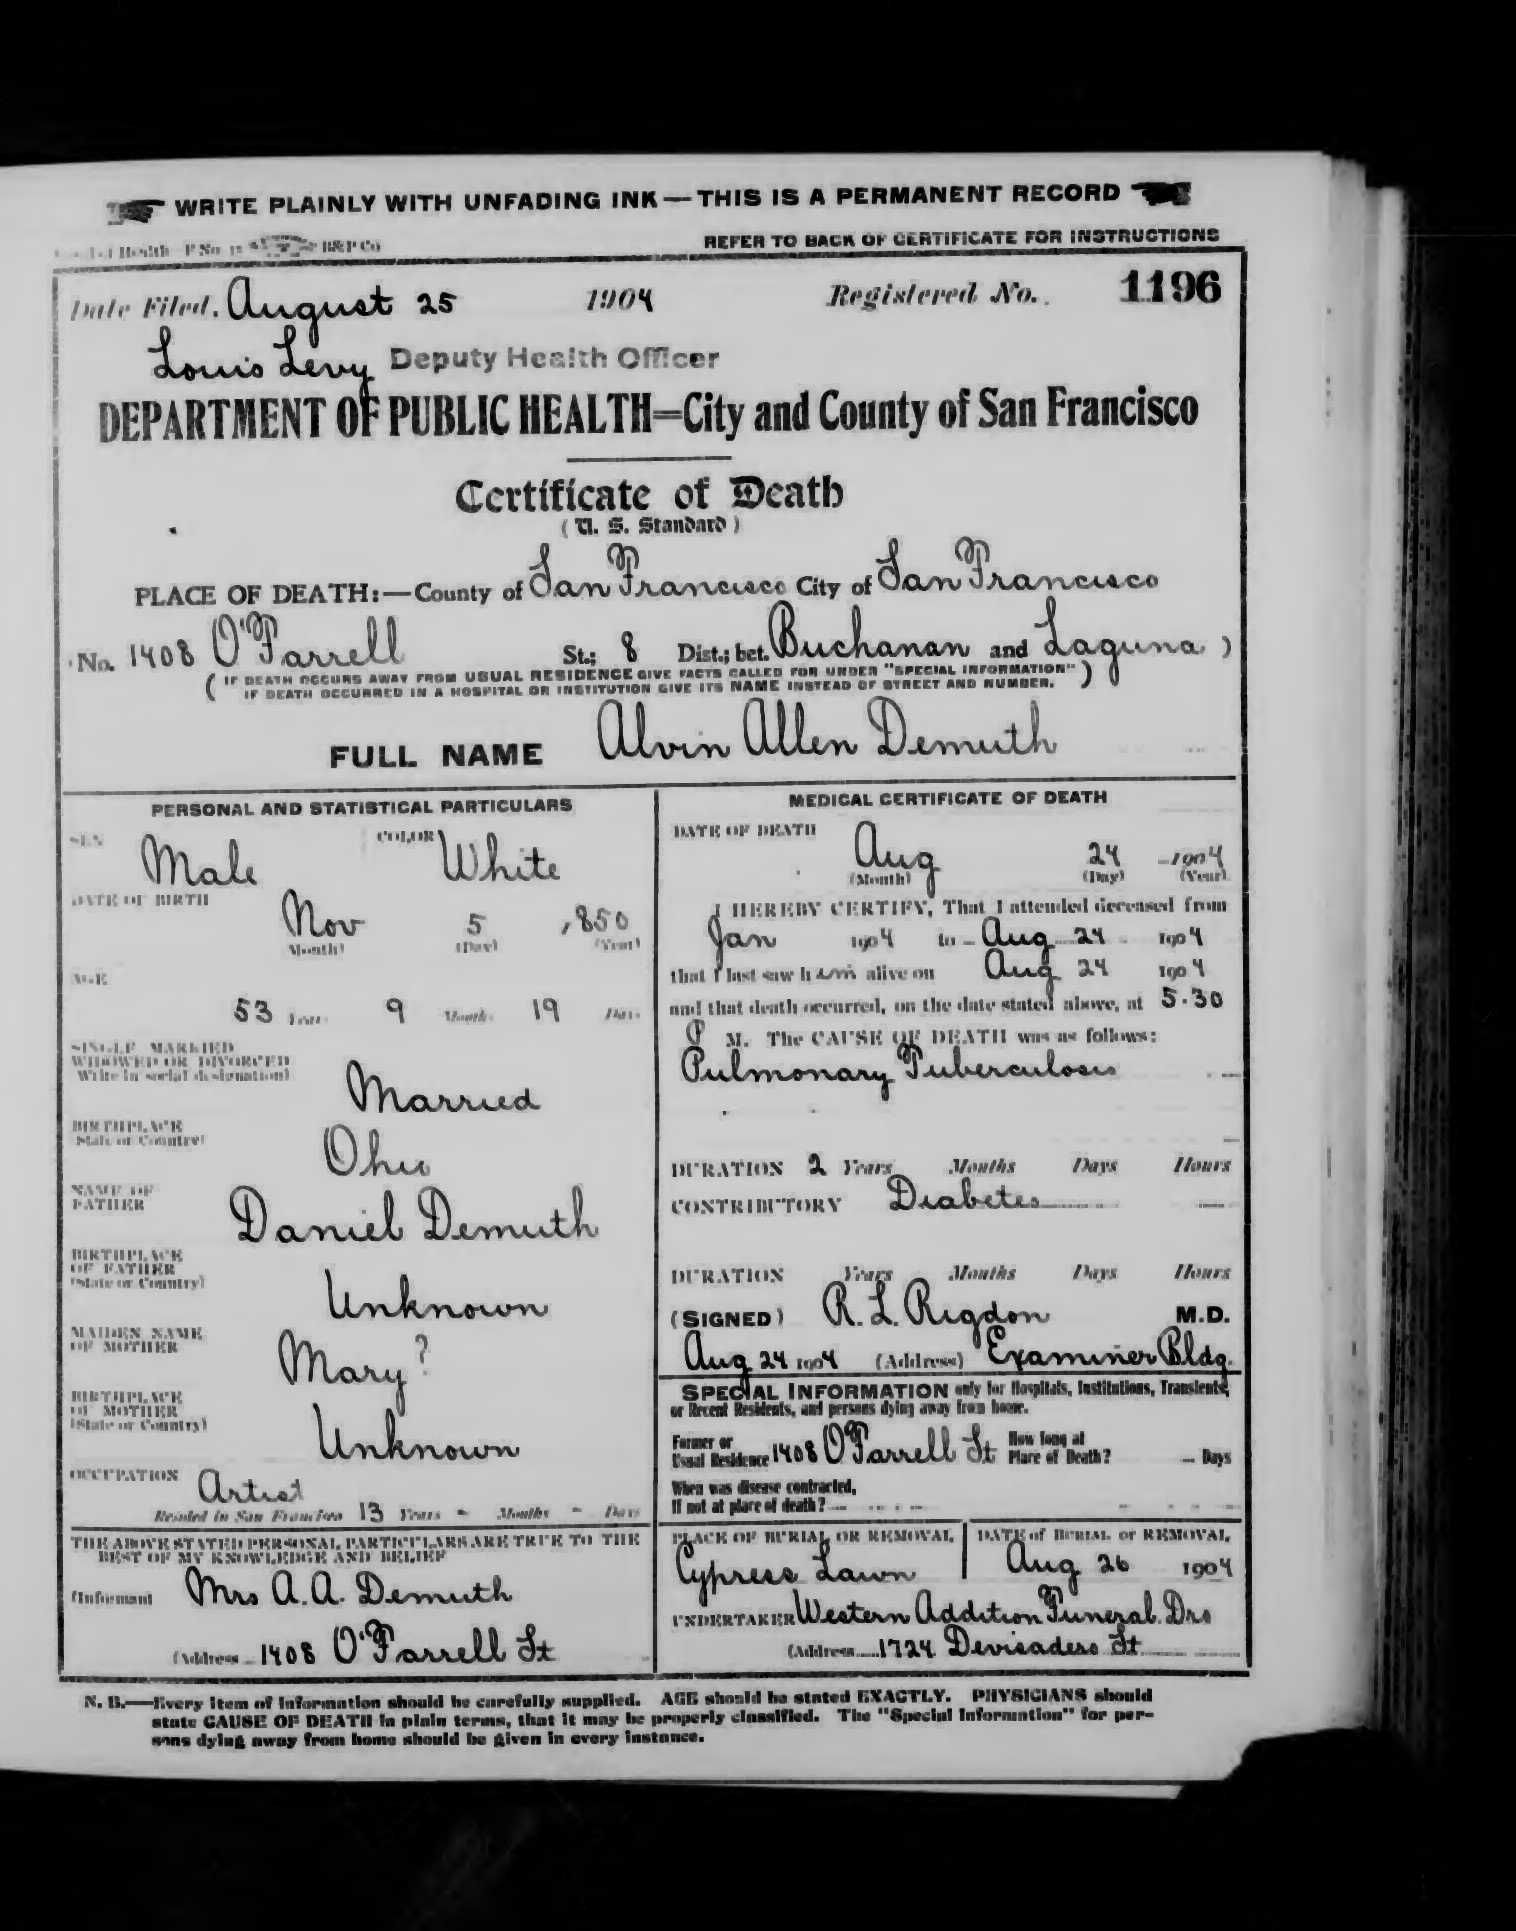 WRITE PLAINLY WITH UNFADING INK — THIS IS A PERMANENT RECORD
of Health P No B&P Co REFER TO BACK OF CERTIFICATE FOR INSTRUCTIONS
Date Filed. August 25 1904 Registered No. 1196
Louis Levy Deputy Health Officer
DEPARTMENT OF PUBLIC HEALTH=City and County of San Francisco
Certificate of Death
(U. S. Standard)
PLACE OF DEATH:—County of San Francisco City of San Francisco
No. 1408 O'Farrell St.; 8 Dist.; bet. Buchanan and Laguna )
( IF DEATH OCCURS AWAY FROM USUAL RESIDENCE GIVE FACTS CALLED FOR UNDER "SPECIAL INFORMATION" )
IF DEATH OCCURRED IN A HOSPITAL OR INSTITUTION GIVE ITS NAME INSTEAD OF STREET AND NUMBER.
FULL NAME Alvin Allen Demuth
PERSONAL AND STATISTICAL PARTICULARS
SEX Male COLOR White
DATE OF BIRTH
Nov 5 1850
(Month) (Day) (Year)
AGE
53 Years 9 Months 19 Days
SINGLE MARRIED
WIDOWED OR DIVORCED
Write in social designation)
Married
BIRTHPLACE
State or Country)
Ohio
NAME OF
FATHER
Daniel Demuth
BIRTHPLACE
OF FATHER
(State or Country)
Unknown
MAIDEN NAME
OF MOTHER
Mary ?
BIRTHPLACE
OF MOTHER
(State or Country)
Unknown
OCCUPATION Artist
Resided in San Francisco 13 Years - Months - Days
THE ABOVE STATED PERSONAL PARTICULARS ARE TRUE TO THE
BEST OF MY KNOWLEDGE AND BELIEF
(Informant Mrs A. A. Demuth
(Address 1408 O'Farrell St
MEDICAL CERTIFICATE OF DEATH
DATE OF DEATH
Aug 24 1904
(Month) (Day) (Year)
I HEREBY CERTIFY, That I attended deceased from
Jan 1904 to Aug 24 1904
that I last saw him alive on Aug 24 1904
and that death occurred, on the date stated above, at 5.30
P M. The CAUSE OF DEATH was as follows:
Pulmonary Tuberculosis
DURATION 2 Years Months Days Hours
CONTRIBUTORY Diabetes
DURATION Years Months Days Hours
(SIGNED) R. L. Rigdon M.D.
Aug 24 1904 (Address) Examiner Bldg.
SPECIAL INFORMATION only for Hospitals, Institutions, Transients,
or Recent Residents, and persons dying away from home.
Former or
Usual Residence 1408 O'Farrell St How long at
Place of Death? — Days
When was disease contracted,
If not at place of death?
PLACE OF BURIAL OR REMOVAL DATE of BURIAL or REMOVAL
Cypress Lawn Aug 26 1904
UNDERTAKER Western Addition Funeral Drs
(Address 1724 Devisadero St
N. B.—Every item of information should be carefully supplied. AGE should be stated EXACTLY. PHYSICIANS should
state CAUSE OF DEATH in plain terms, that it may be properly classified. The "Special Information" for per-
sons dying away from home should be given in every instance.